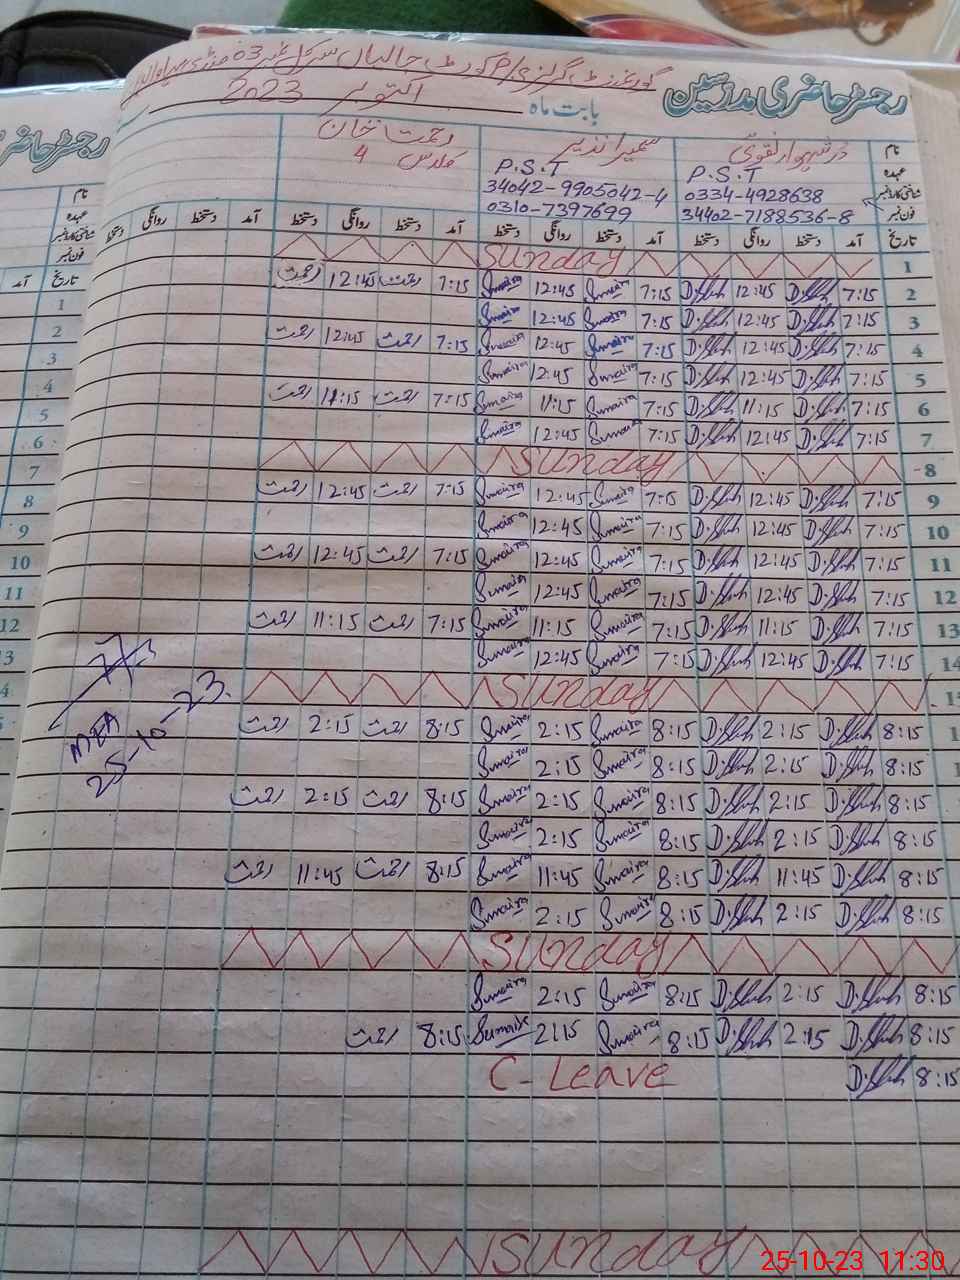 گورنمنٹ گرلز
رجسٹر حاضری مدرسین
بابت ماہ اکتوبر 2023
نام
عہدہ
شناختی کارڈ نمبر
فون نمبر
تاریخ
نقوی
P.S.T
0334-4928638
34402-7188536-8
سمیرا نذیر
P.S.T
34042-9905042-4
0310-7397699
رحمت خان
کلاس 4
آمد دستخط روانگی دستخط آمد دستخط روانگی دستخط آمد دستخط روانگی دستخط آمد دستخط روانگی دستخط
1 Sunday
2 7:15 D.Shah 12:45 D.Shah 7:15 Sumaira 12:45 Sumaira 7:15 رحمت 12:45 رحمت
3 7:15 D.Shah 12:45 D.Shah 7:15 Sumaira 12:45 Sumaira
4 7:15 D.Shah 12:45 D.Shah 7:15 Sumaira 12:45 Sumaira 7:15 رحمت 12:45 رحمت
5 7:15 D.Shah 12:45 D.Shah 7:15 Sumaira 12:45 Sumaira
6 7:15 D.Shah 11:15 D.Shah 7:15 Sumaira 11:15 Sumaira 7:15 رحمت 11:15 رحمت
7 7:15 D.Shah 12:45 D.Shah 7:15 Sumaira 12:45 Sumaira
8 Sunday
9 7:15 D.Shah 12:45 D.Shah 7:15 Sumaira 12:45 Sumaira 7:15 رحمت 12:45 رحمت
10 7:15 D.Shah 12:45 D.Shah 7:15 Sumaira 12:45 Sumaira
11 7:15 D.Shah 12:45 D.Shah 7:15 Sumaira 12:45 Sumaira 7:15 رحمت 12:45 رحمت
12 7:15 D.Shah 12:45 D.Shah 7:15 Sumaira 12:45 Sumaira
13 7:15 D.Shah 11:15 D.Shah 7:15 Sumaira 11:15 Sumaira 7:15 رحمت 11:15 رحمت
14 7:15 D.Shah 12:45 D.Shah 7:15 Sumaira 12:45 Sumaira
Sunday
8:15 D.Shah 2:15 D.Shah 8:15 Sumaira 2:15 Sumaira 8:15 رحمت 2:15 رحمت
8:15 D.Shah 2:15 D.Shah 8:15 Sumaira 2:15 Sumaira
8:15 D.Shah 2:15 D.Shah 8:15 Sumaira 2:15 Sumaira 8:15 رحمت 2:15 رحمت
8:15 D.Shah 2:15 D.Shah 8:15 Sumaira 2:15 Sumaira
8:15 D.Shah 11:45 D.Shah 8:15 Sumaira 11:45 Sumaira 8:15 رحمت 11:45 رحمت
8:15 D.Shah 2:15 D.Shah 8:15 Sumaira 2:15 Sumaira
Sunday
8:15 D.Shah 2:15 D.Shah 8:15 Sumaira 2:15 Sumaira
8:15 D.Shah 2:15 D.Shah 8:15 Sumaira 2:15 Sumaira 8:15 رحمت
8:15 D.Shah C-Leave
Sunday
MEA
25-10-23.
رجسٹر حاضری
نام
عہدہ
شناختی کارڈ نمبر
فون نمبر
تاریخ آمد
1
2
3
4
5
6
7
8
9
10
11
12
25-10-23 11:30